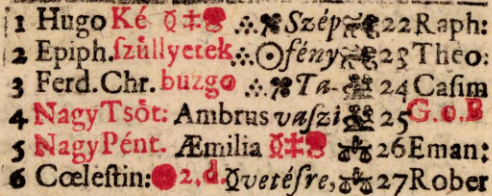 1 Hugo Ké ☿ ‡ ∴ Szép 22 Raph:
2 Epiph. szüllyetek ∴ ☉ fény 23 Theo:
3 Ferd. Chr. buzgo ∴ Ta- 24 Casim
4 Nagy Tsöt: Ambrus vaszi 25 G. o. B
5 Nagy Pént. Æmilia ☿ ‡ 26 Eman:
6 Cœlestin: 2, d. ☿ vetésre, 27 Rober